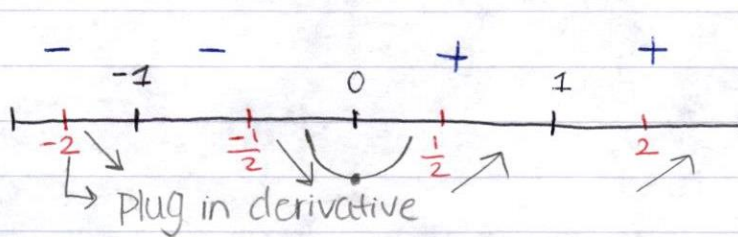 − − + +
-1 0 1
-2 -1/2 1/2 2
plug in derivative